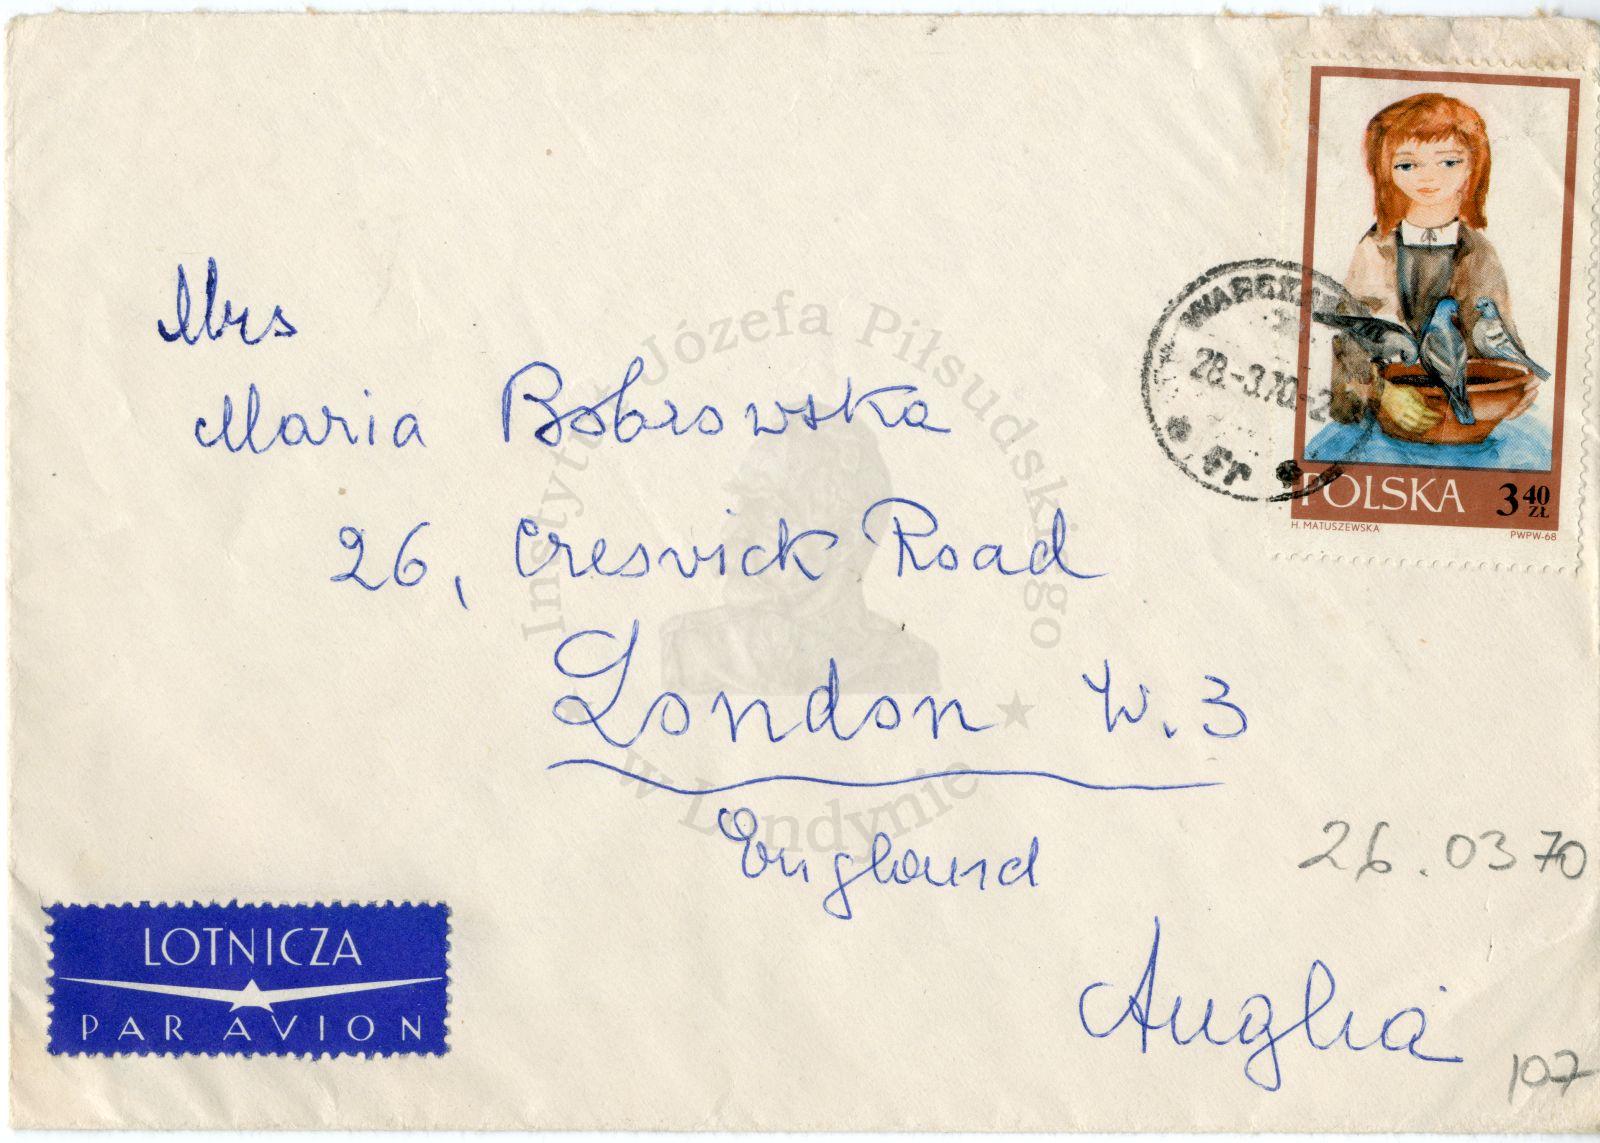 Mrs
Maria Bobrowska
26, Cresvick Road
London W. 3
England
Anglia
26.03 70
107
LOTNICZA
PAR AVION
WARSZAWA
28.-3.70.-2
POLSKA 3 40 ZŁ
H. MATUSZEWSKA PWPW-68
Instytut Józefa Piłsudskiego
w Londynie